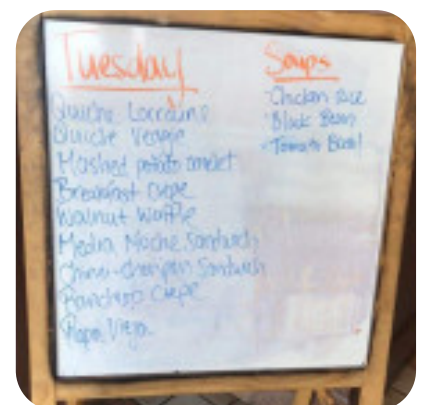 Tuesday
Quiche Lorraine
Quiche Veggie
Mashed potato omelet
Breakfast crepe
Walnut Waffle
Media Noche Sandwich
Sandwich
Ranchero Crepe
Ropa Vieja
Soups
-Chicken rice
-Black Bean
-Tomato Basil